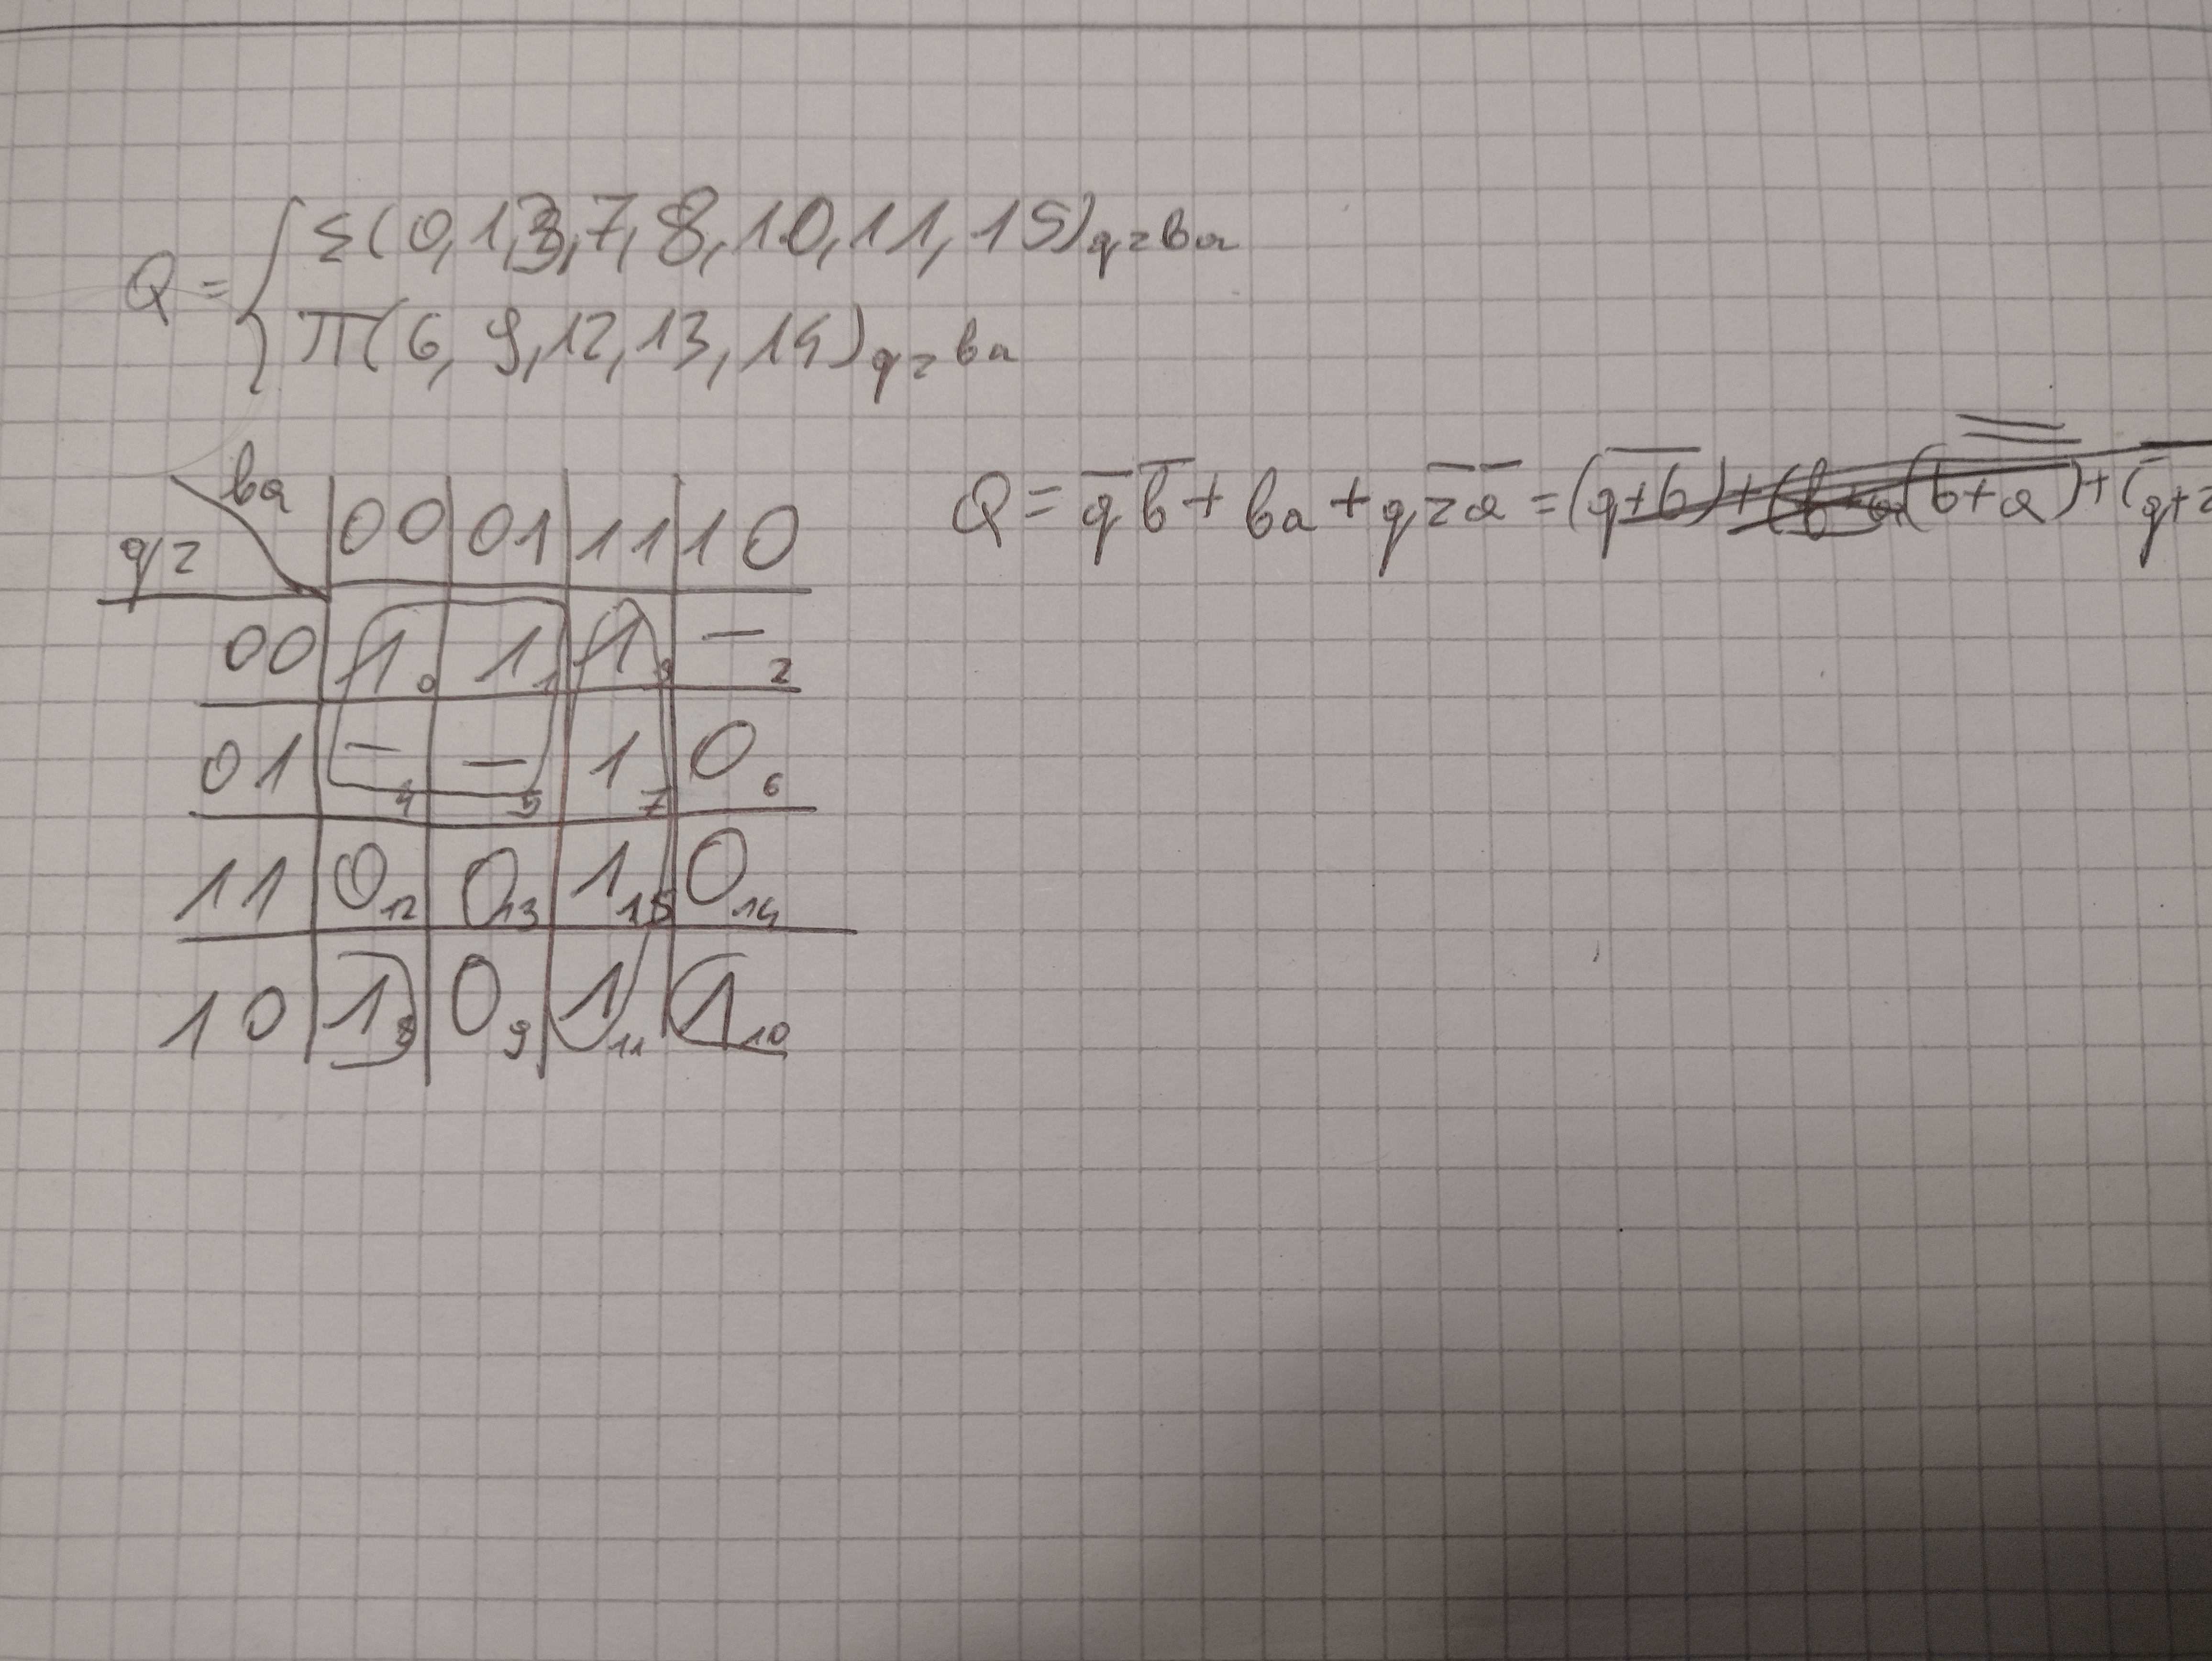 Q = { Σ(0,1,3,7,8,10,11,15)qzba
π(6,9,12,13,14)qzba
ba
qz
00 01 11 10
00 1 0 1 1 1 3 – 2
01 – 4 – 5 1 7 0 6
11 0 12 0 13 1 15 0 14
10 1 8 0 9 1 11 1 10
Q = q̅ b̅ + ba + q z̅ a̅ = (q+b) + (b+a) + (q̅+z